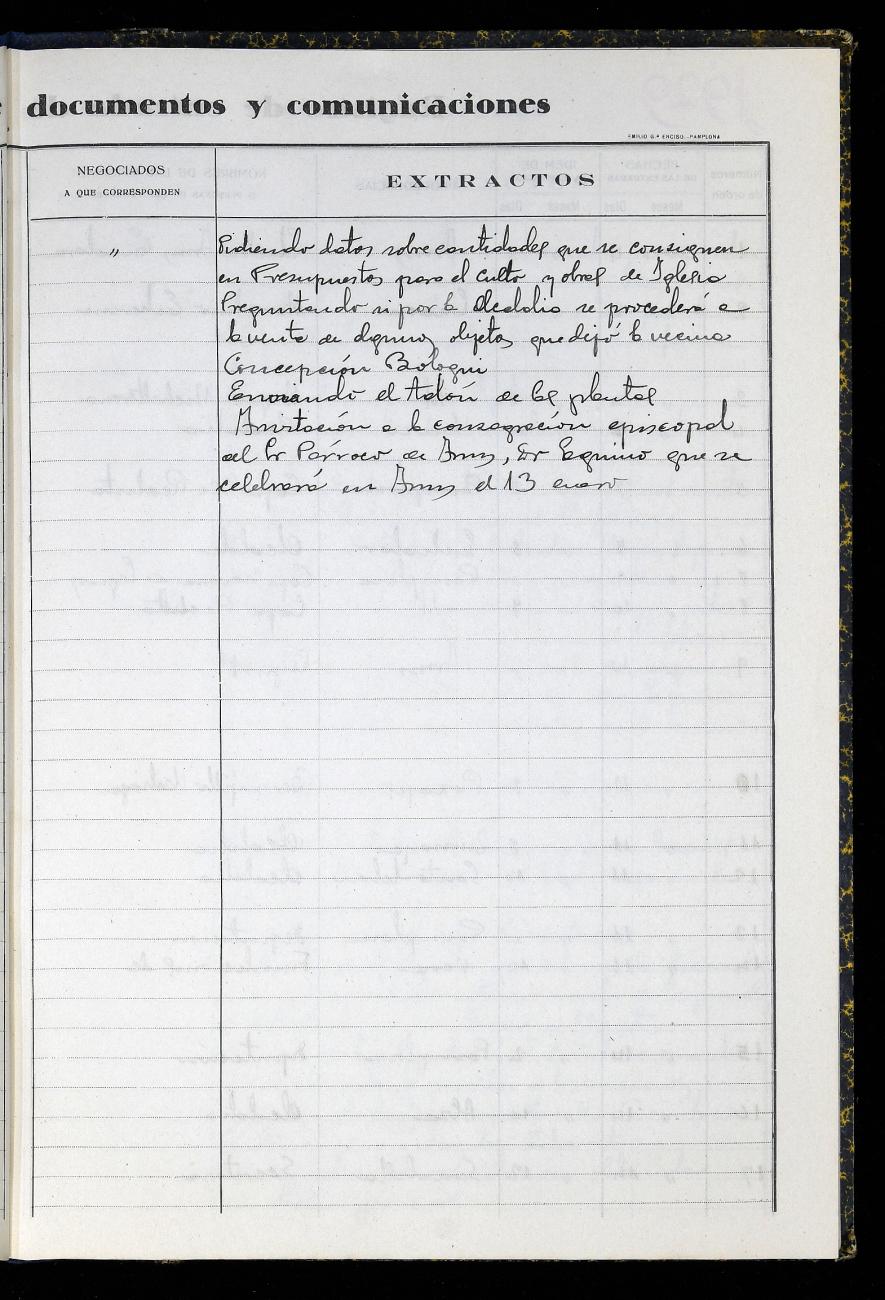 documentos y comunicaciones
EMILIO G.ª ENCISO.-PAMPLONA
NEGOCIADOS
A QUE CORRESPONDEN
EXTRACTOS
"
Pidiendo datos sobre cantidades que se consignen
en Presupuestos para el culto y obras de Iglesia
Preguntando si por la Alcaldia se procederá a
la venta de algunos objetos que dejó la vecina
Concepción Bologui
Enviando el talón de las plantas
Invitación a la consagración episcopal
del Sr Párroco de Irun, Sr Eguino que se
celebrará en Irun el 13 enero